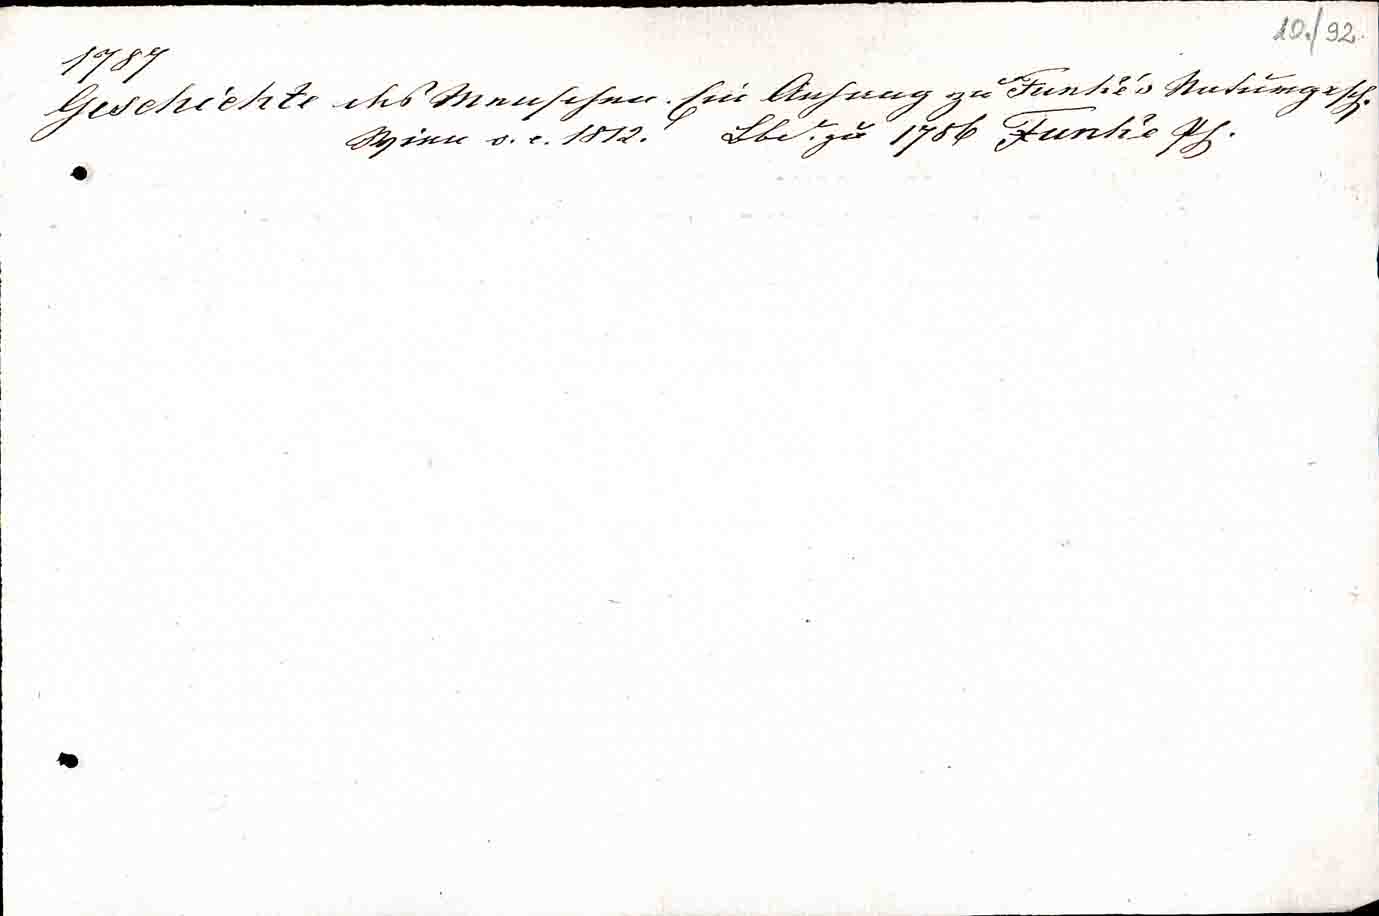 10./92.
1787
Geschichte des Menschen. Ein Anhang zu Funke's Naturgesch.
Wien 1812. zu 1786 Funke Ph.